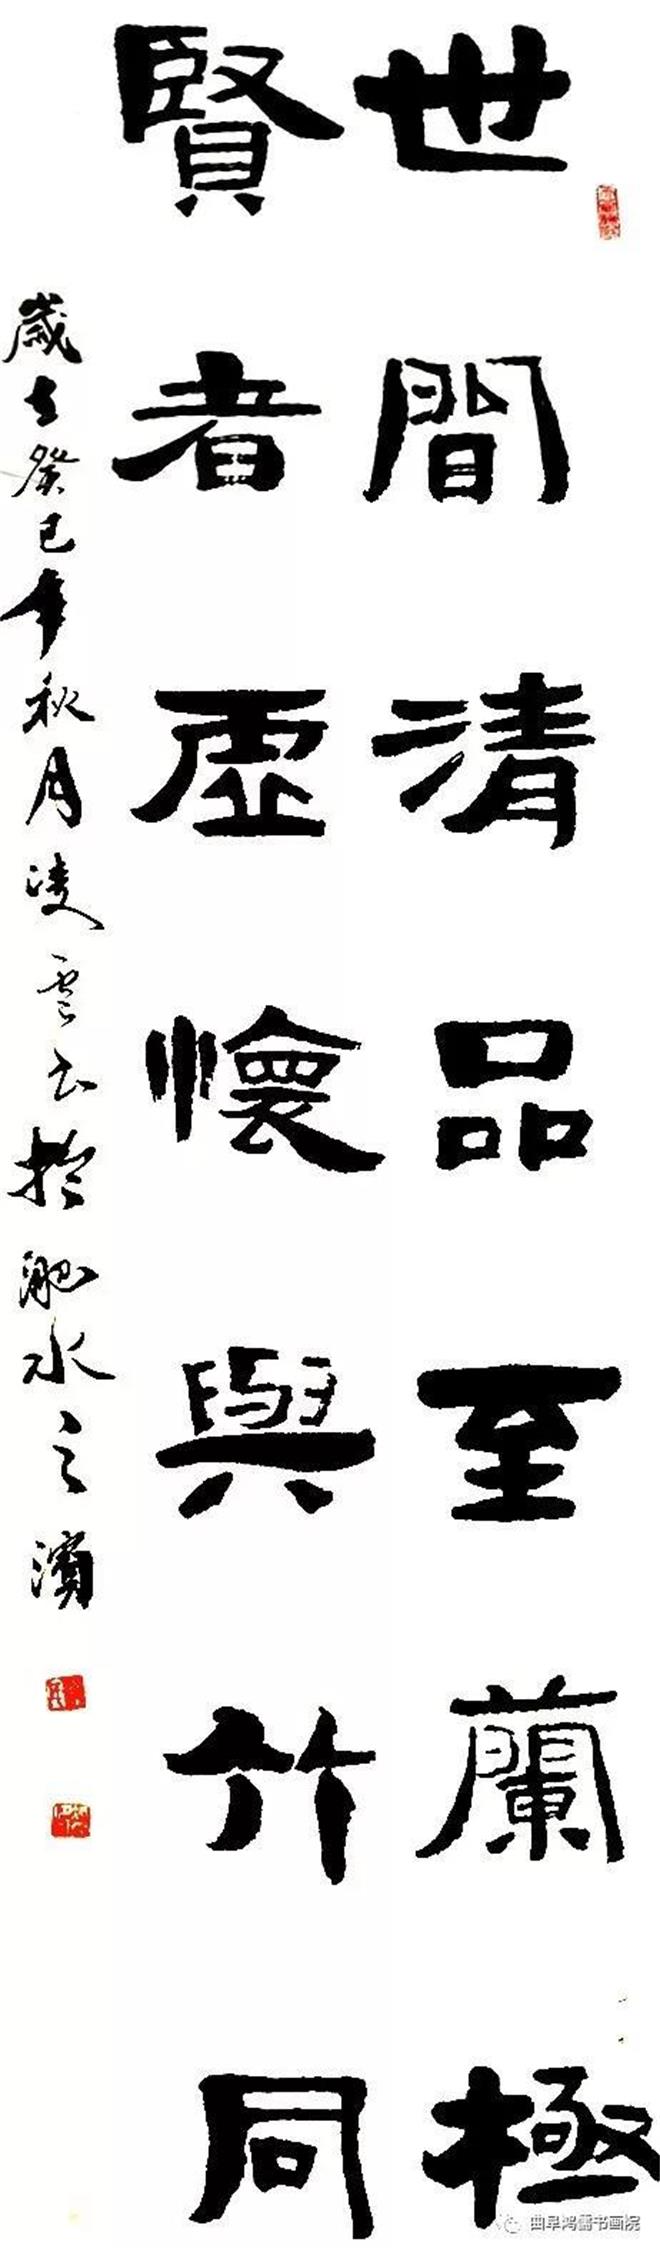 世間清品至蘭極
賢者虛懷與竹同
歲在癸巳年秋月凌雲書於淝水之濱
曲阜鸿儒书画院